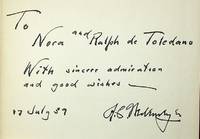 To
Nora and Ralph de Toledano
With sincere admiration
and good wishes —
17 July 59